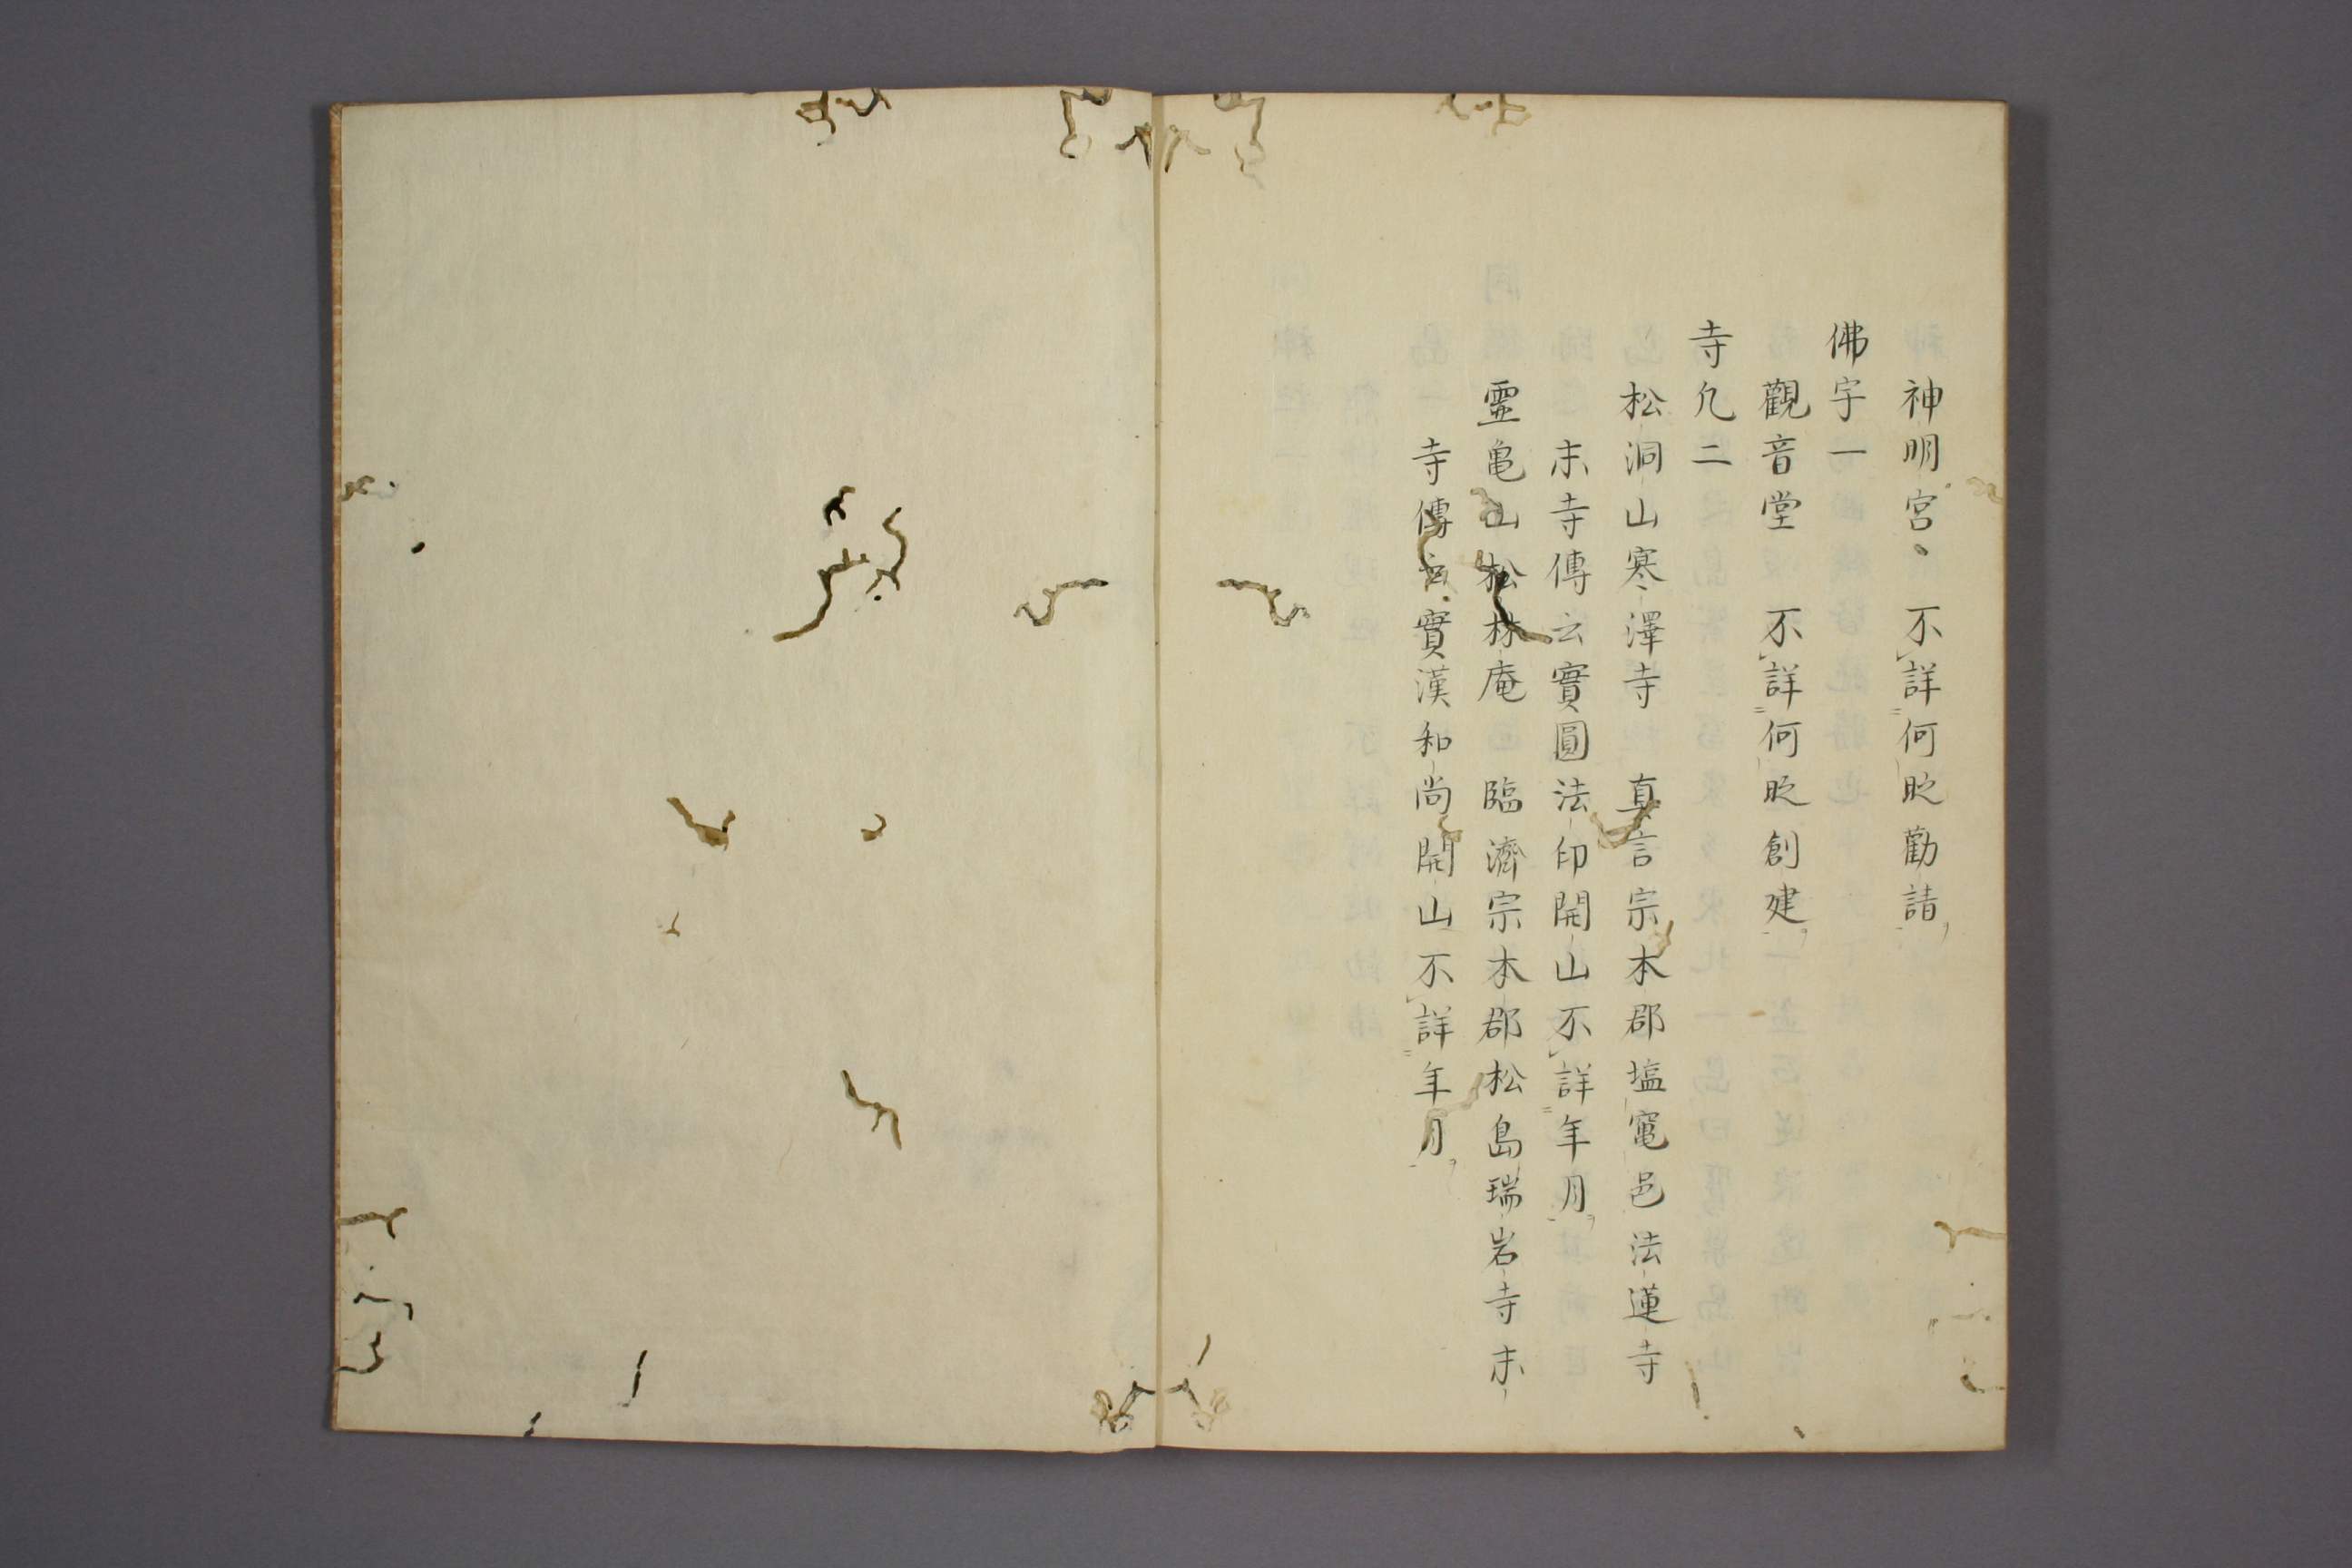 神明宮　不詳何時勧請
佛宇一
觀音堂　不詳何時創建
寺凢二
松洞山寒澤寺　真言宗本郡塩竃邑法蓮寺
末寺傳云實圓法印開山不詳年月
霊亀山松林庵　臨濟宗本郡松島瑞岩寺末
寺傳云實漢和尚開山不詳年月